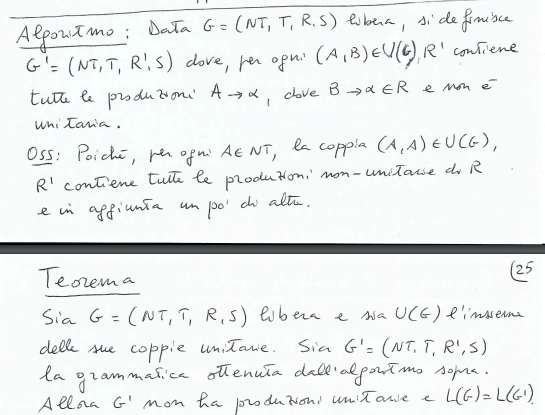 Algoritmo: Data G = (NT, T, R, S) libera, si definisce
G' = (NT, T, R', S) dove, per ogni (A, B) ∈ U(G), R' contiene
tutte le produzioni A → α, dove B → α ∈ R e non è
unitaria.
Oss: Poiché, per ogni A ∈ NT, la coppia (A, A) ∈ U(G),
R' contiene tutte le produzioni non-unitarie di R
e in aggiunta un po' di altre.
Teorema
(25
Sia G = (NT, T, R, S) libera e sia U(G) l'insieme
delle sue coppie unitarie. Sia G' = (NT, T, R', S)
la grammatica ottenuta dall'algoritmo sopra.
Allora G' non ha produzioni unitarie e L(G) = L(G').